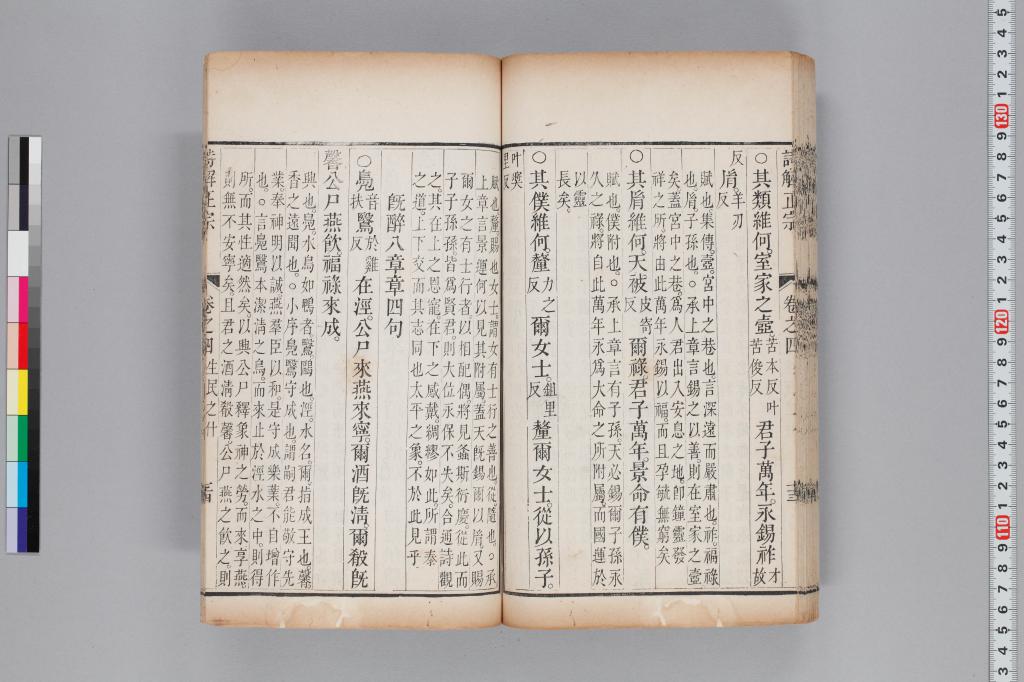 ○其類維何。室家之壼。苦本反叶苦俊反君子萬年。永錫祚才故
反胤羊刃反
賦也集傳壼。宮中之巷也言深遠而嚴肅也。祚。福祿
也。胤子孫也。○承上章言錫之以善。則在室家之壼
矣蓋宮中之巷。爲人君出入安息之地。即鐘靈發
祥之所。將由此萬年永錫以福。而且孕毓無窮矣
○其胤維何。天被皮寄反爾祿。君子萬年。景命有僕。
賦也。僕附也。○承上章言有子孫。天必錫爾子孫永
久之祿。將自此萬年永爲大命之所附屬。而國運於
以靈長矣。
○其僕維何。釐力之反爾女士。鉏里反釐爾女士。從以孫子。
叶獎里反
賦也釐。賜也女士。謂女有士行之善也。從。隨也。○承
上章言景運何以見其附屬蓋天旣錫爾以胤又賜
爾女之有士行者以相配偶將見螽斯衍慶從此而
子子孫孫。皆爲賢君。則大位永保不失矣。合通詩觀
之。其在上之恩寵。在下之感戴。綢繆如此。所謂泰
之道。上下交而其志同也太平之象。不於此見乎。
旣醉八章章四句
○鳧音扶鷖於雞反在涇。公尸來燕來寧。爾酒旣淸。爾殽旣
馨公尸燕飲。福祿來成。
興也。鳧。水鳥如鴨者鷖鷗也。涇。水名。爾。指成王也馨。
香之遠聞也。○小序鳧鷖守成也謂嗣君能敬守先
業。奉神明以誠燕羣臣以和是守成樂業。不自增作
也。○言鳧鷖本潔淸之鳥。而來止於涇水之中。則得
所。而其性適然矣。以興公尸釋象神之勞。而來享燕
則無不安寧矣且君之酒淸殽馨。公尸燕之飲之。則
詩解正宗 卷之四 生民之什